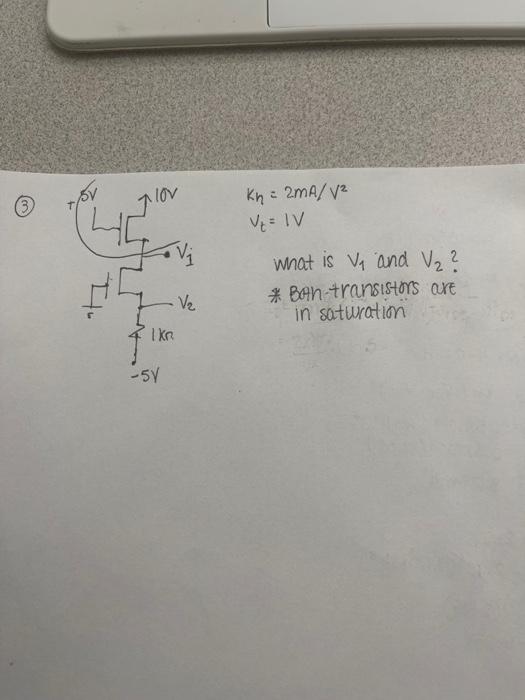 ③
+ 5V
10V
V1
V2
1kΩ
-5V
Kn = 2mA/V²
Vt = 1V
what is V1 and V2?
* Both transistors are
in saturation